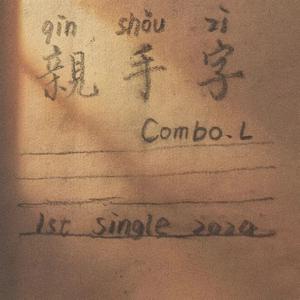 qīn shǒu zì
親手字
Combo.L
1st single 2024